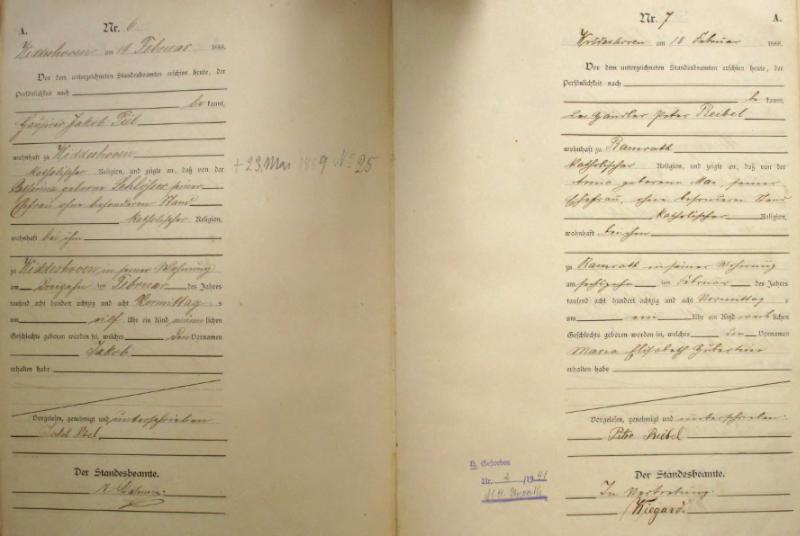 A.
Nr. 6
Widdeshoven am 18 Februar 1888.
Vor dem unterzeichneten Standesbeamten erschien heute, der
Persönlichkeit nach
be kannt,
Jakob
wohnhaft zu Widdeshoven
katholischer Religion, und zeigte an, daß von der
Catharina geborene Schlösser seiner
Ehefrau ohne besonderen Stand
katholischer Religion,
wohnhaft bei ihm
zu Widdeshoven in seiner Wohnung
am dreizehn ten Februar des Jahres
tausend acht hundert achtzig und acht Vormittag s
um elf Uhr ein Kind männ lichen
Geschlechts geboren worden sei, welches den Vornamen
Jakob
erhalten habe
Vorgelesen, genehmigt und unterschrieben
Jakob
Der Standesbeamte.
+ 23. Mai 1889 No 25
Nr. 7
A.
am 18 Februar 1888.
Vor dem unterzeichneten Standesbeamten erschien heute, der
Persönlichkeit nach
be kannt,
der Händler Peter Reibel
wohnhaft zu Ramrath
katholischer Religion, und zeigte an, daß von der
Anna geborene Mai, seiner
Ehefrau, ohne besonderen Stand
katholischer Religion,
wohnhaft
zu Ramrath in seiner Wohnung
am sechszehn ten Februar des Jahres
tausend acht hundert achtzig und acht Vormittag s
um ein Uhr ein Kind weib lichen
Geschlechts geboren worden sei, welches den Vornamen
Maria Elisabeth Hubertine
erhalten habe
Vorgelesen, genehmigt und unterschrieben
Peter Reibel
Gestorben
Nr. 2 /19 41
Der Standesbeamte.
In Vertretung
Wiegard